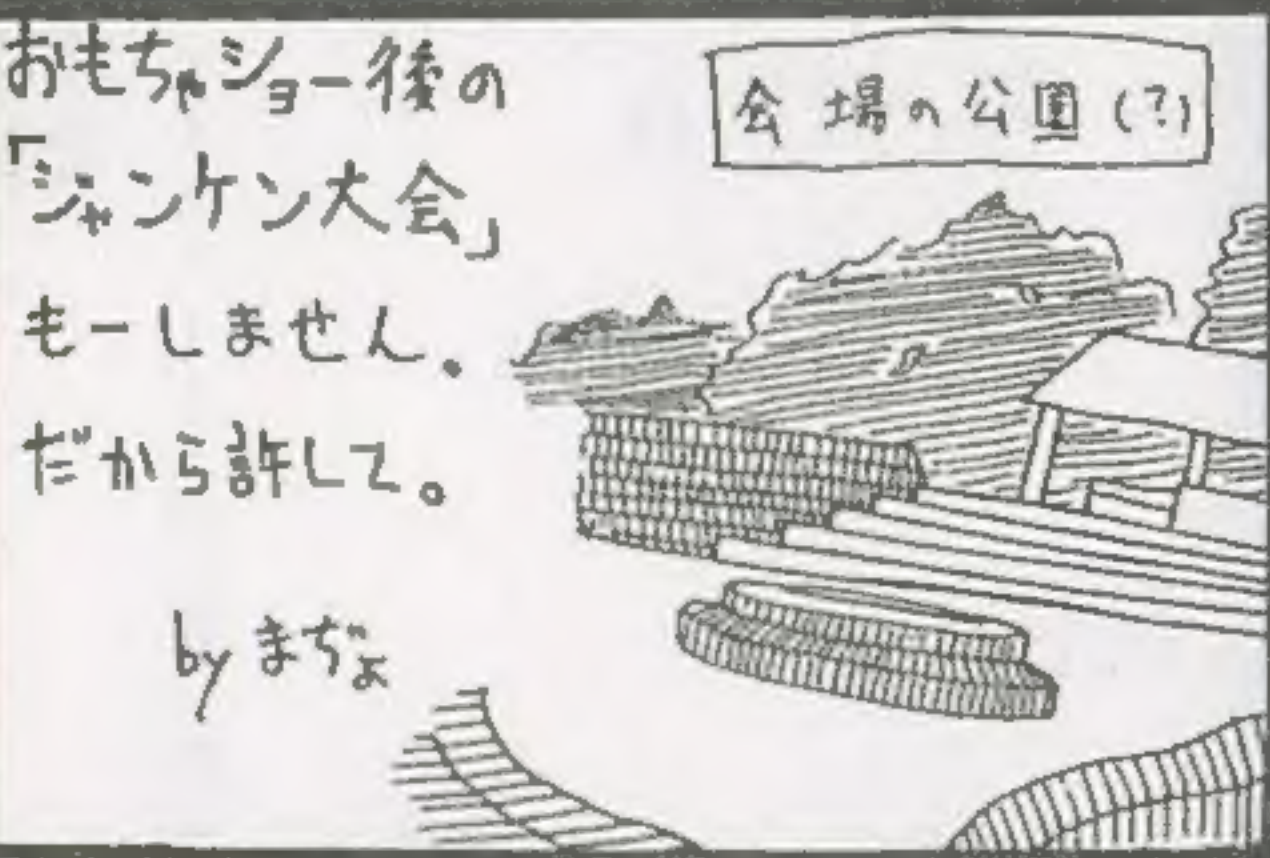 おもちゃショー後の
「ジャンケン大会」
もーしません。
だから許して。
by まぢょ
会場の公園(?)